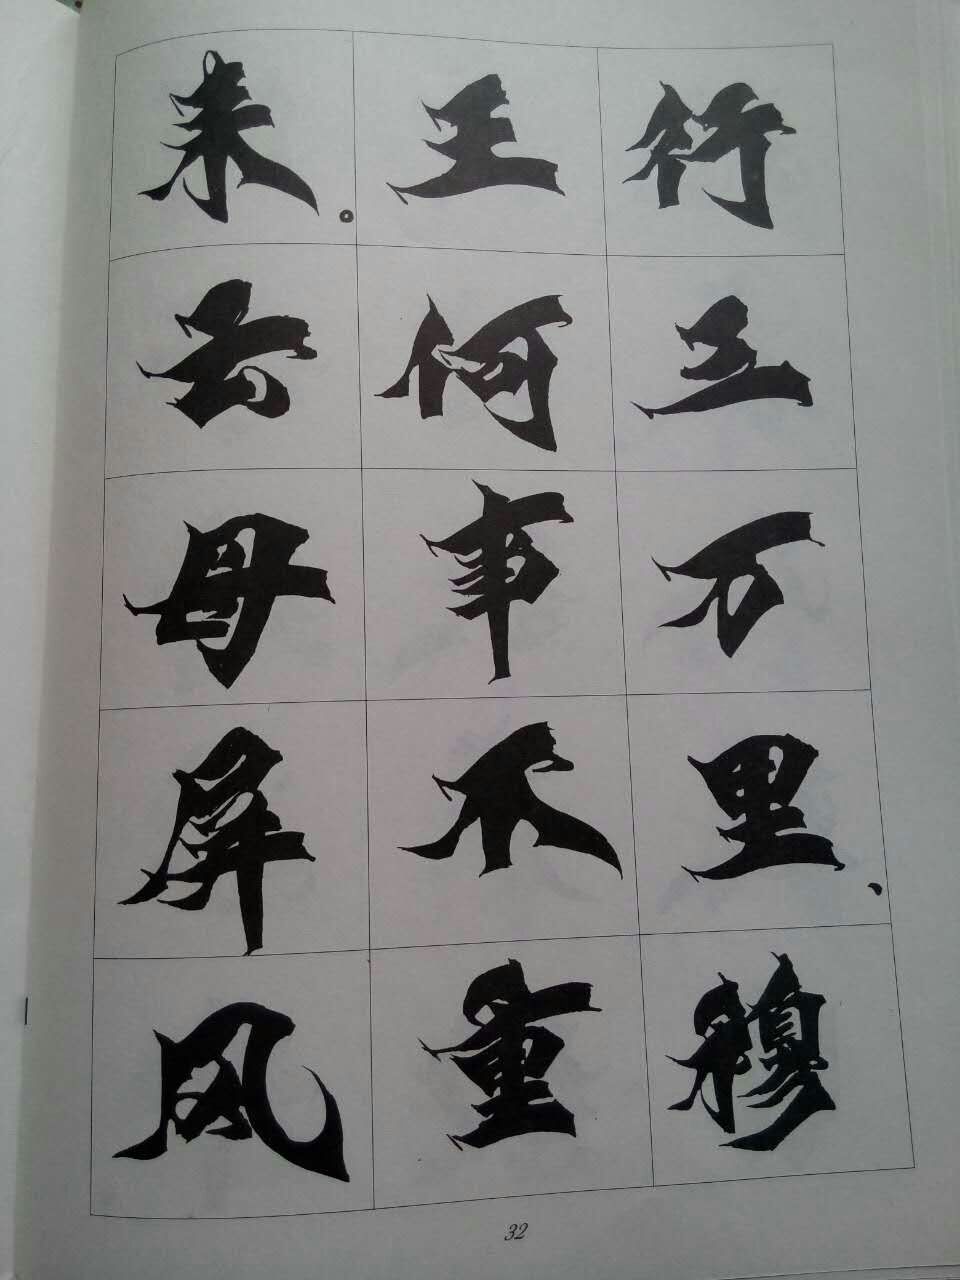 行三万里、穆
王何事不重
来。云母屏风
32